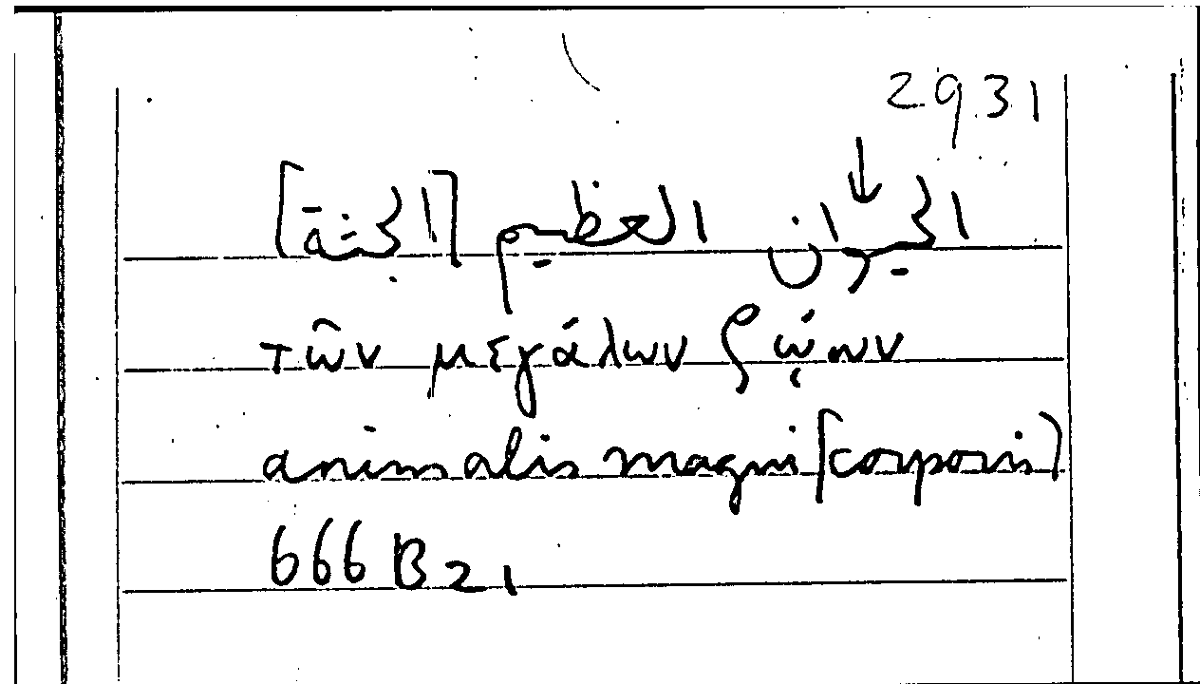 2931
↓
الحيوان العظيم [الجثة]
τῶν μεγάλων ζῴων
animalis magni [corporis]
666 B 21